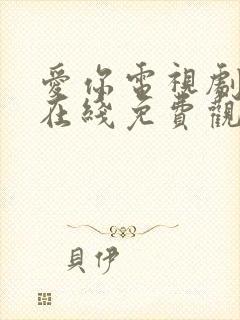 愛你電視劇
在綫免費觀
貝伊